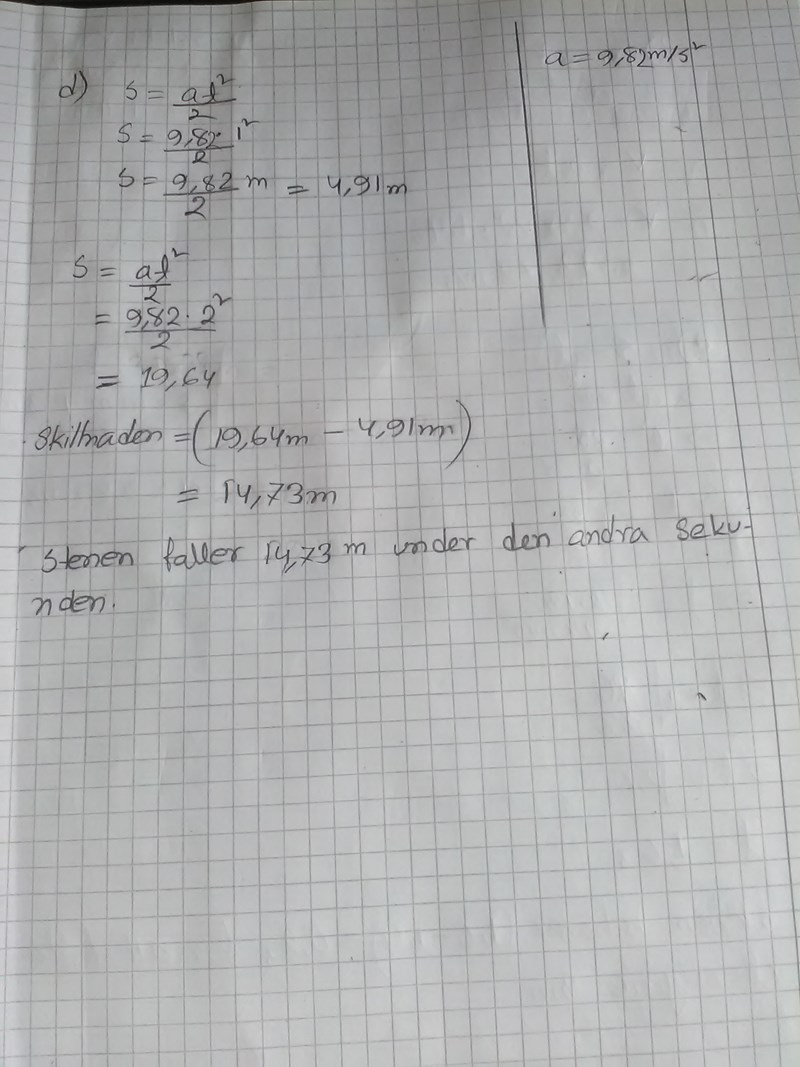 a = 9,82m/s²
d) s = at²/2
s = 9,82·1²/2
s = 9,82/2 m = 4,91m
s = at²/2
= 9,82·2²/2
= 19,64
Skillnaden = (19,64m - 4,91m)
= 14,73m
Stenen faller 14,73 m under den andra seku-
nden.